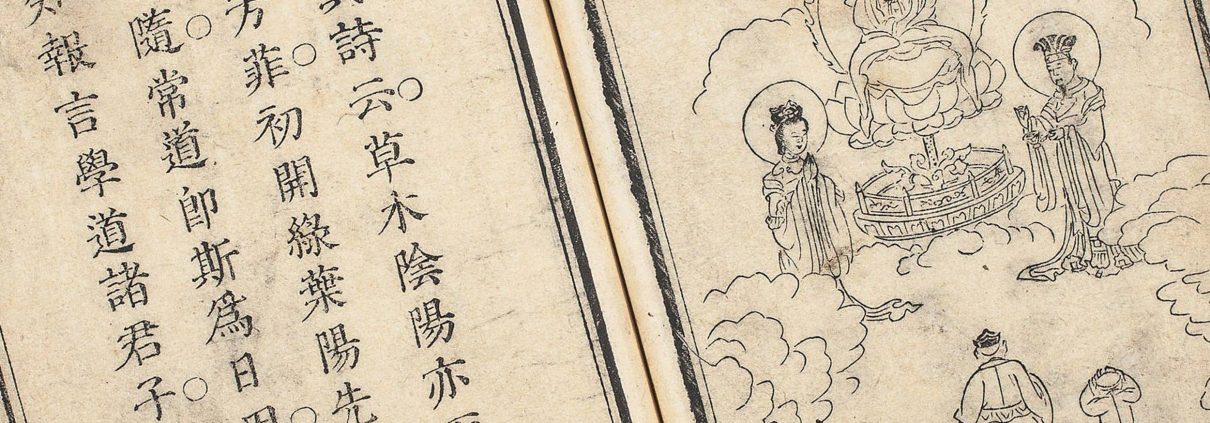 詩云○草木陰陽亦
芳菲○初開綠葉陽先
隨○常道卽斯爲日
報言學道諸君子○